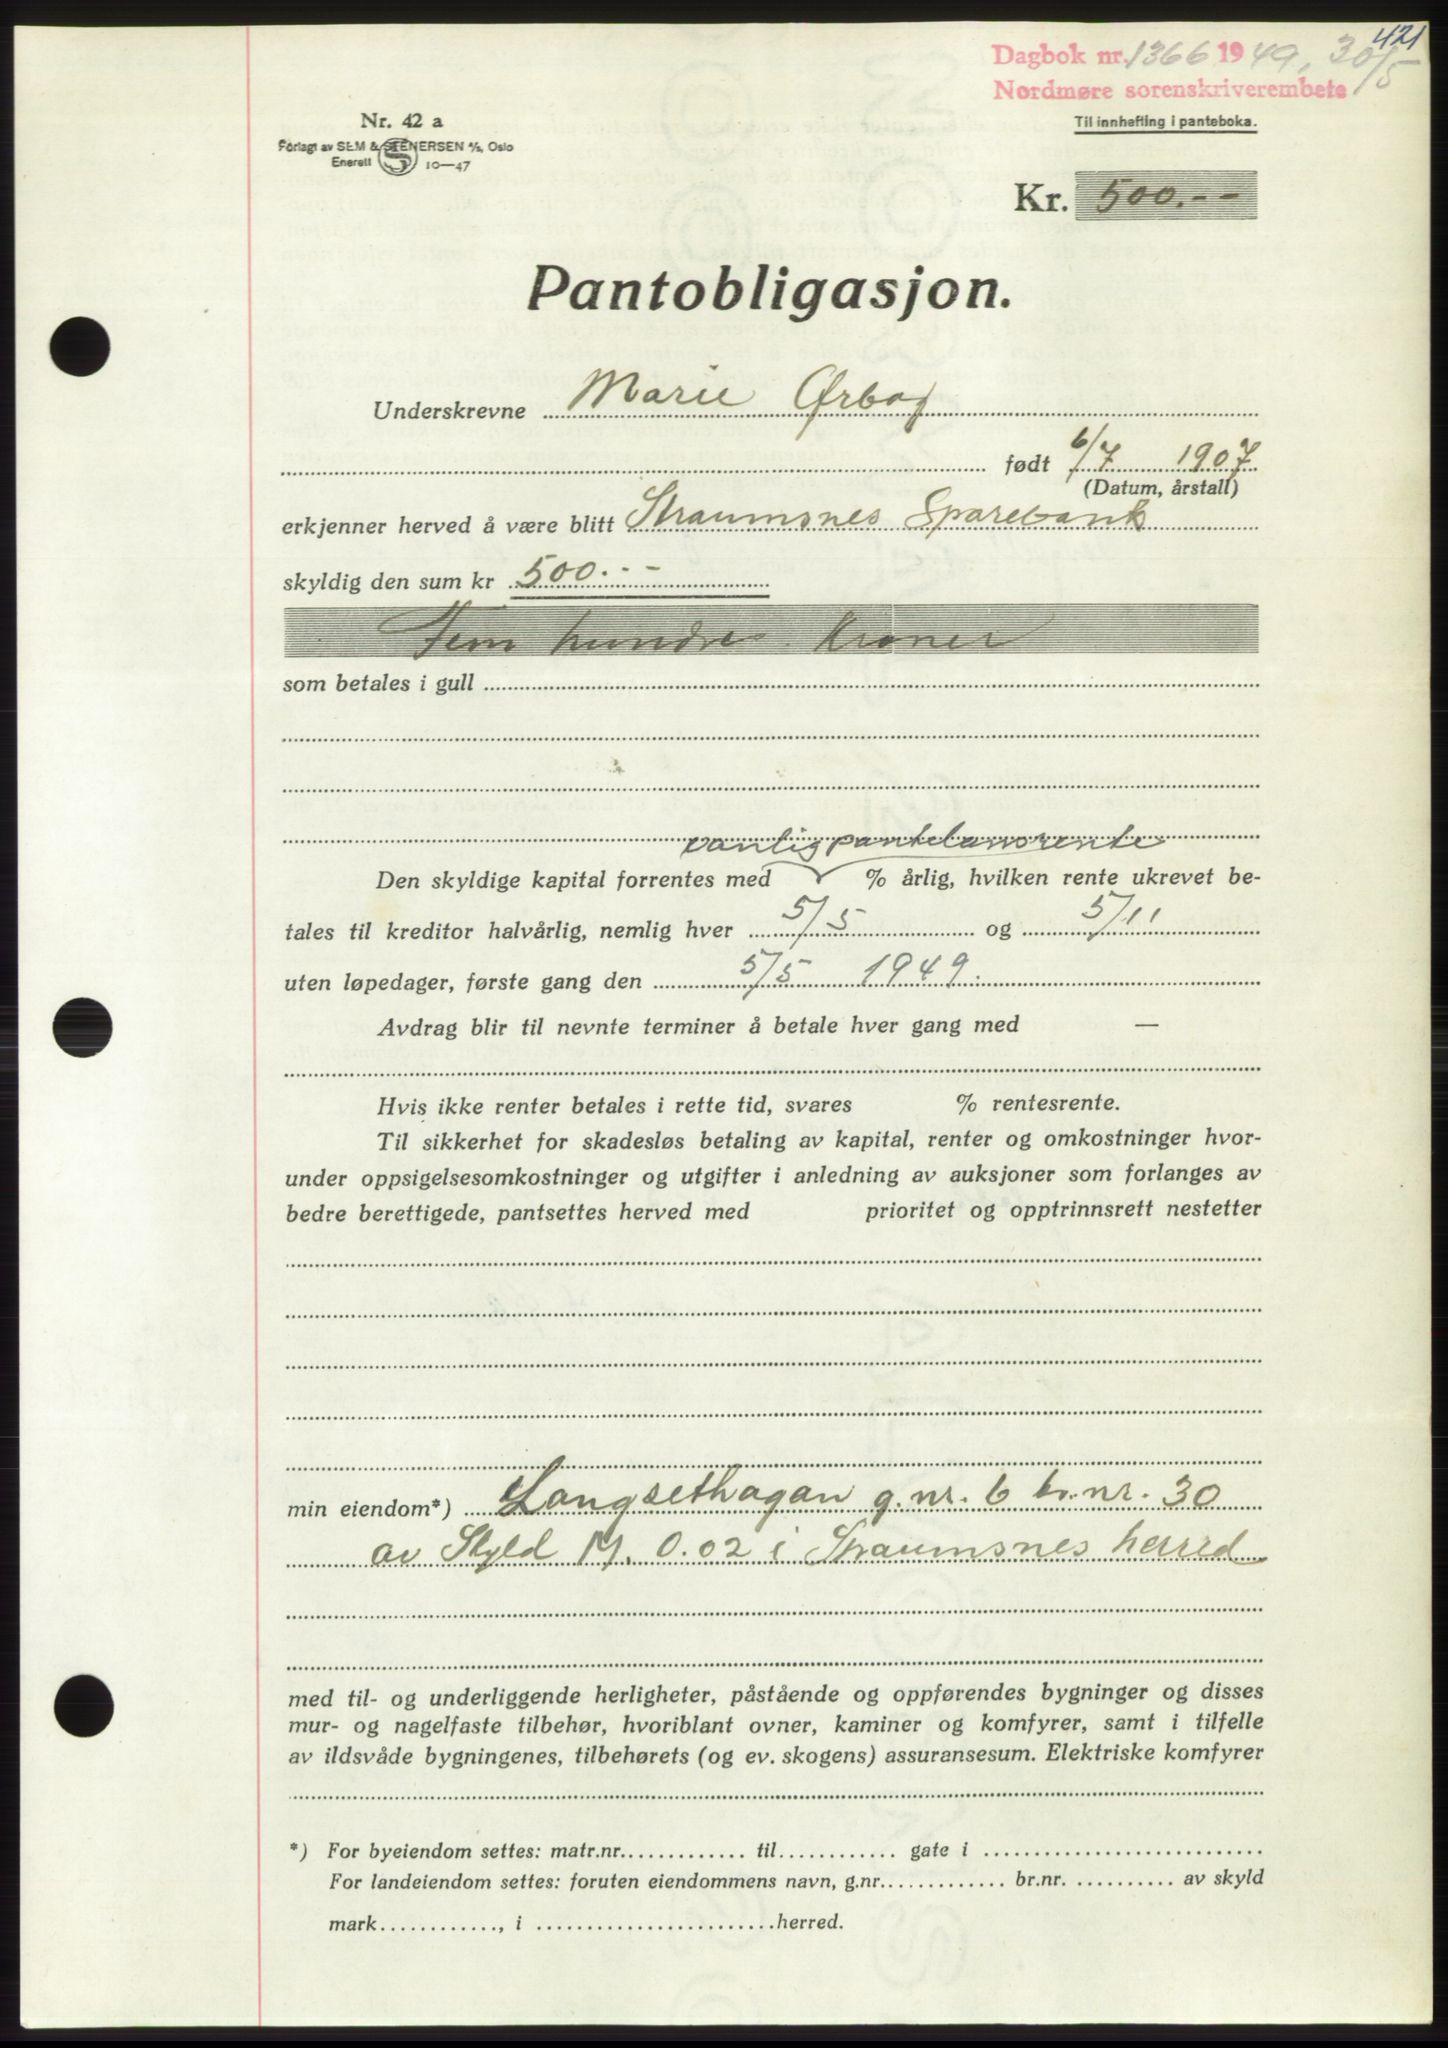 421
Dagbok nr. 1366 1949, 30/5
Nordmøre sorenskriverembete
Til innhefting i panteboka.
Nr. 42 a
Forlagt av SEM & STENERSEN A/S, Oslo
Enerett 10—47
Kr. 500.--
Pantobligasjon.
Underskrevne Marie Ørbog
født 6/7 1907
(Datum, årstall)
erkjenner herved å være blitt Straumsnes Sparebank
skyldig den sum kr 500.--
Fem hundre Kroner
som betales i gull
vanlig pantelånsrente
Den skyldige kapital forrentes med % årlig, hvilken rente ukrevet be-
tales til kreditor halvårlig, nemlig hver 5/5 og 5/11
uten løpedager, første gang den 5/5 1949.
Avdrag blir til nevnte terminer å betale hver gang med —
Hvis ikke renter betales i rette tid, svares % rentesrente.
Til sikkerhet for skadesløs betaling av kapital, renter og omkostninger hvor-
under oppsigelsesomkostninger og utgifter i anledning av auksjoner som forlanges av
bedre berettigede, pantsettes herved med prioritet og opptrinnsrett nestetter
min eiendom*) Langsethagan g.nr. 6 br.nr. 30
av Skyld M. 0.02 i Straumsnes herred
med til- og underliggende herligheter, påstående og oppførendes bygninger og disses
mur- og nagelfaste tilbehør, hvoriblant ovner, kaminer og komfyrer, samt i tilfelle
av ildsvåde bygningenes, tilbehørets (og ev. skogens) assuransesum. Elektriske komfyrer
*) For byeiendom settes: matr.nr. til gate i
For landeiendom settes: foruten eiendommens navn, g.nr. br.nr. av skyld
mark, i herred.